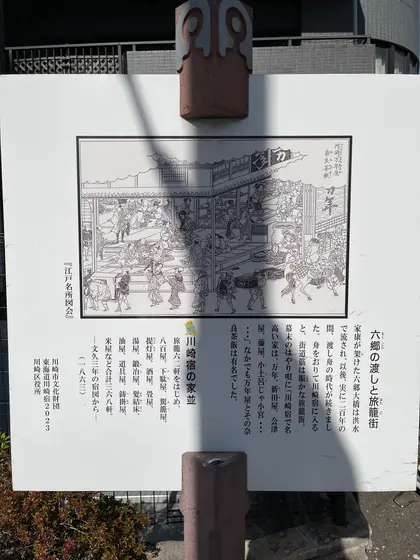 六郷の渡しと旅籠街
家康が架けた六郷大橋は洪水
で流され、以後、実に二百年の
間、渡し舟の時代が続きまし
た。舟をおりて川崎宿に入る
と、街道筋は賑かな旅籠街。
幕末のはやり唄に「川崎宿で名
高い家は、万年、新田屋、会津
屋、藤屋、小土呂じゃ小宮・・・
・・・」。なかでも万年屋とその奈
良茶飯は有名でした。
川崎宿の家並
旅籠六二軒をはじめ、
八百屋、下駄屋、駕籠屋、
提灯屋、酒屋、畳屋、
湯屋、鍛冶屋、髪結床、
油屋、道具屋、鋳掛屋、
米屋など合計三六八軒。
―文久三年の宿図から―
(一八六三)
万年
『江戸名所図会』
川崎市文化財団
東海道川崎宿2023
川崎区役所